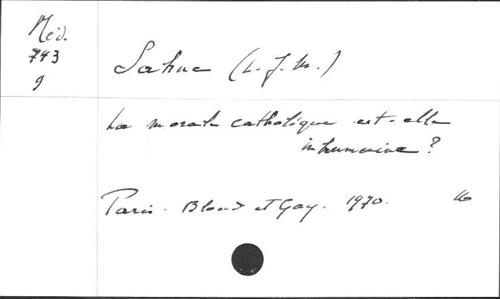 Méd.
743
9
Sahuc (L. J. M.)
La morale catholique est-elle
inhumaine?
Paris. Bloud et Gay. 1970. 16